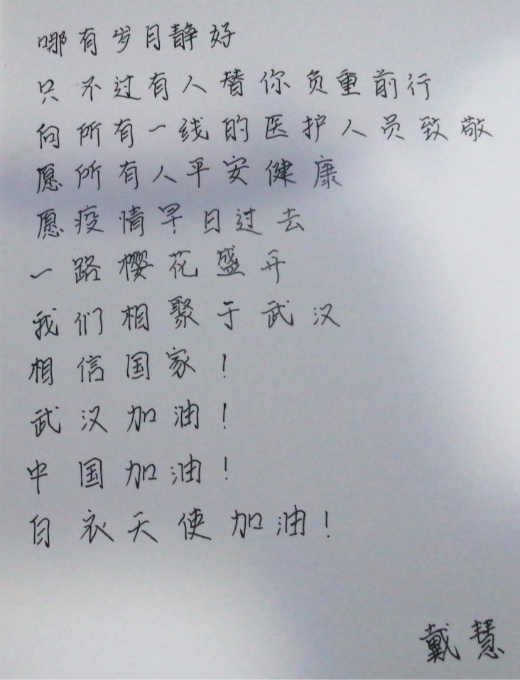 哪有岁月静好
只不过有人替你负重前行
向所有一线的医护人员致敬
愿所有人平安健康
愿疫情早日过去
一路樱花盛开
我们相聚于武汉
相信国家！
武汉加油！
中国加油！
白衣天使加油！
戴慧